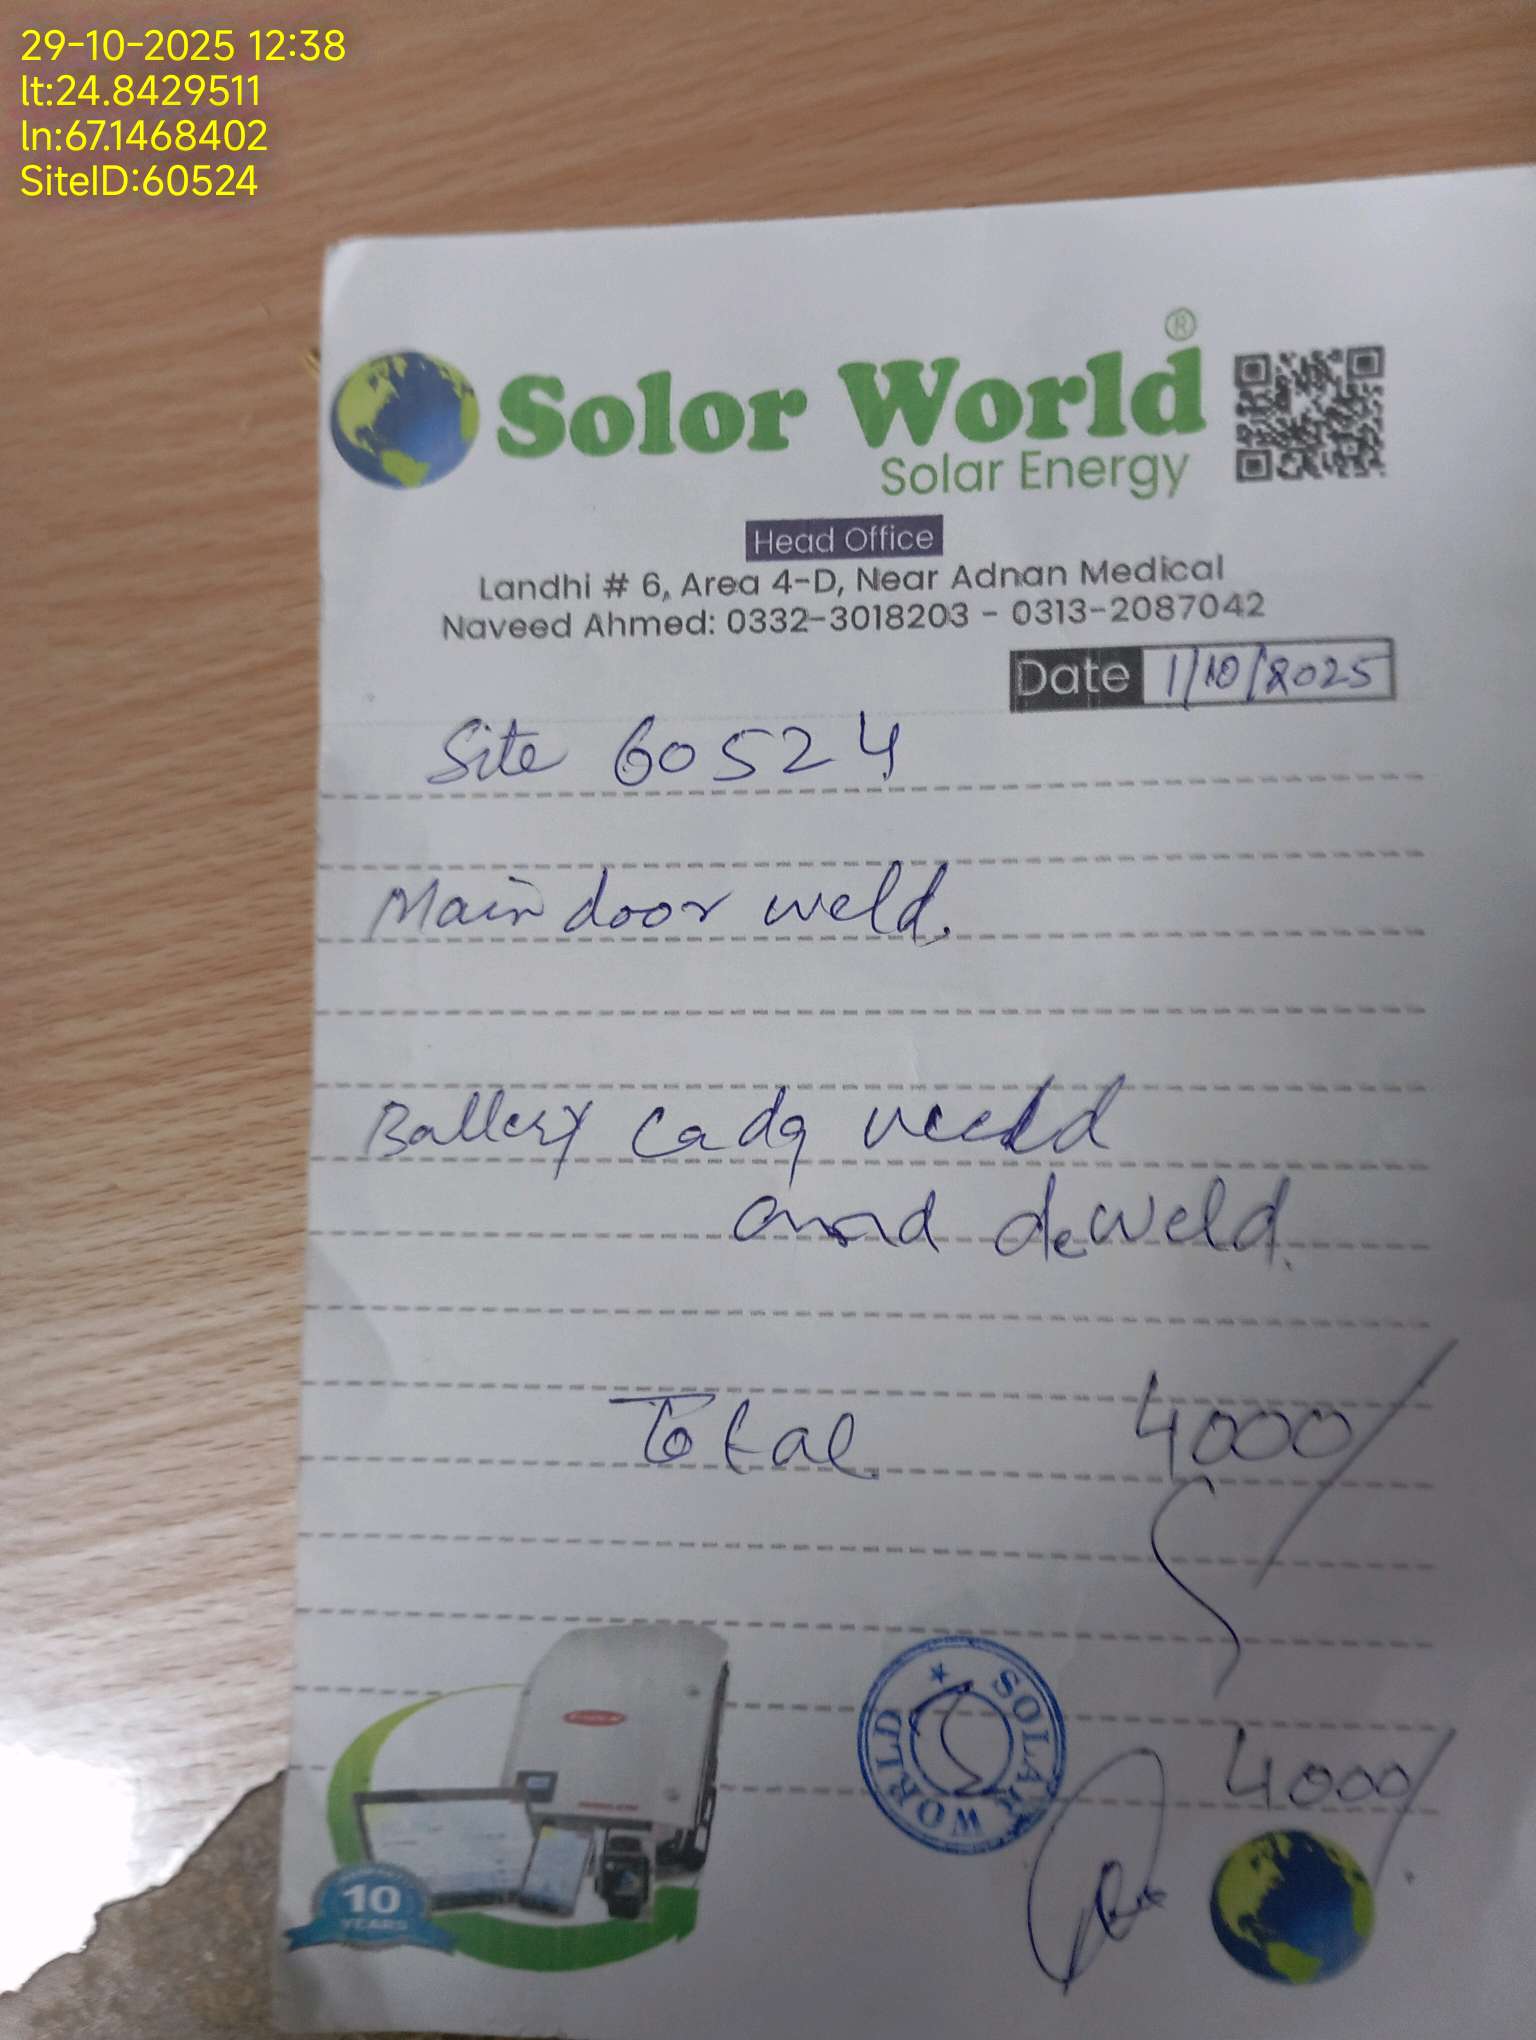 29-10-2025 12:38
lt:24.8429511
ln:67.1468402
SiteID:60524
Solor World ®
Solar Energy
Head Office
Landhi # 6, Area 4-D, Near Adnan Medical
Naveed Ahmed: 0332-3018203 - 0313-2087042
Date 1/10/2025
Site 60524
Main door weld.
Battery cadg weld
and deweld.
Total 4000/
SOLAR WORLD
4000/
10
YEARS